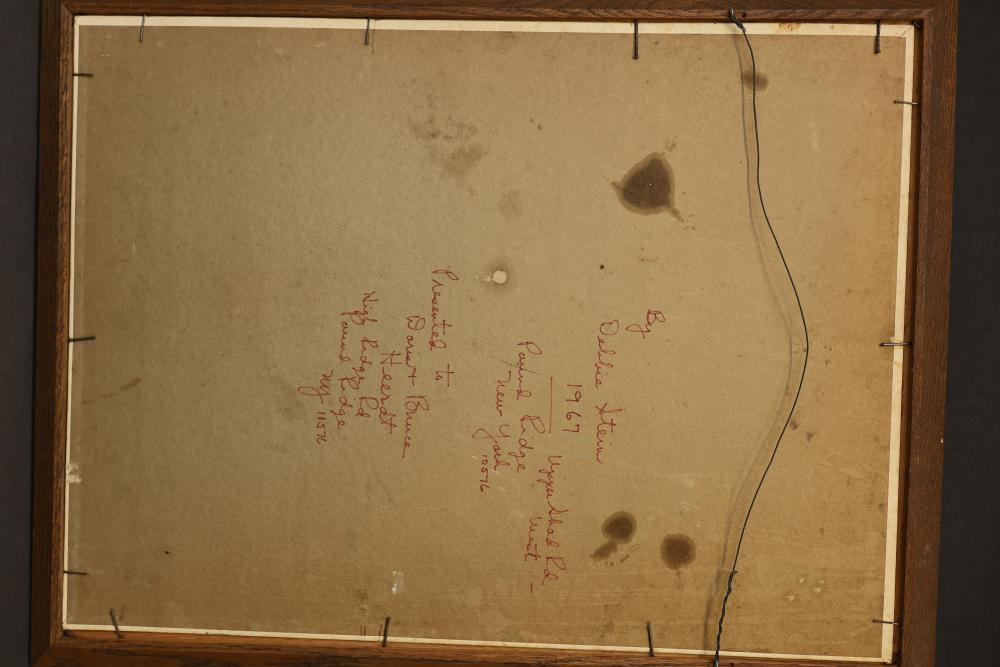 By
Debbie Stein
1967
Upper Shad Rd
West -
Pound Ridge
New York
10576
Presented to
Doris + Bruce
Heerdt
High Ridge Rd
Pound Ridge
NY 11576